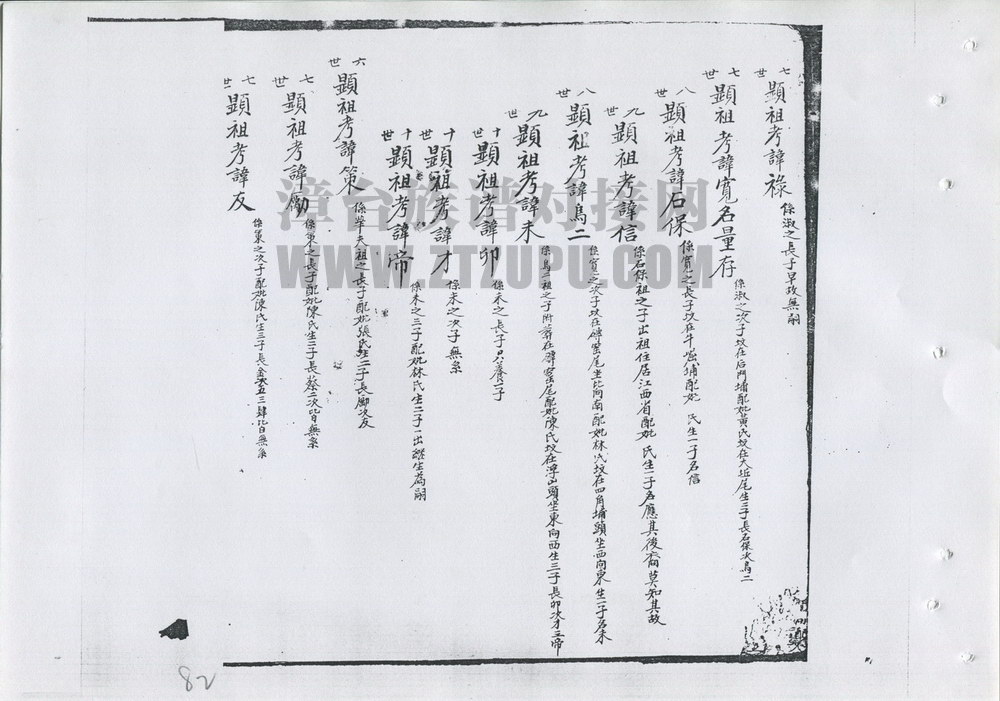 七世 顯祖考諱祿 係淑之長子早歿無嗣
七世 顯祖考諱寬名量存 係淑之次子坟在后門埔配妣黃氏坟在大近尾生二子長石保次烏二
八世 顯祖考諱石保 係寬之長子坟在牛崛埔配妣 氏生一子名信
九世 顯祖考諱信 係石保祖之子出祖住居江西省配妣 氏生一子名應其後裔莫知其故
八世 顯祖考諱烏二 係寬之次子坟在磚窰尾坐北向南配妣林氏坟在四角埔頭坐西向東生一子名未
九世 顯祖考諱未 係烏二祖之子附葬在磚窰尾配妣陳氏坟在浮山頭坐東向西生三子長卯次才三帝
十世 顯祖考諱卯 係未之長子只養一子
十世 顯祖考諱才 係未之次子無系
十世 顯祖考諱帝 係未之三子配妣林氏生二子一出繼生為嗣
六世 顯祖考諱策 夫祖之長子配妣張氏生二子長 次友
七世 顯祖考諱 係策之長子配妣陳氏生二子長蔡二次皆無系
七世 顯祖考諱友 係策之次子配妣陳氏生三子長金次五三肆皆無系
漳台族谱对接网
WWW.ZTZUPU.COM
82